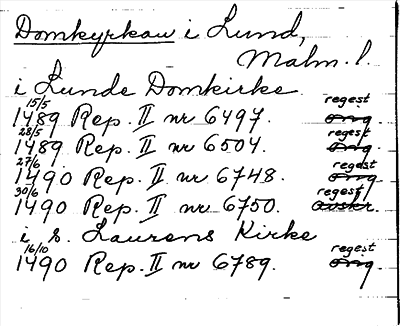 Domkyrkan i Lund,
Malm. l.
i Lunde Domkirke
15/5 regest
1489 Rep. II nr 6497. orig.
28/5 regest
1489 Rep. II nr 6504. orig.
27/6 regest
1490 Rep. II nr 6748. orig
30/6 regest
1490 Rep. II nr 6750. avskr.
i S. Laurens Kirke
16/10 regest
1490 Rep. II nr 6789. orig.